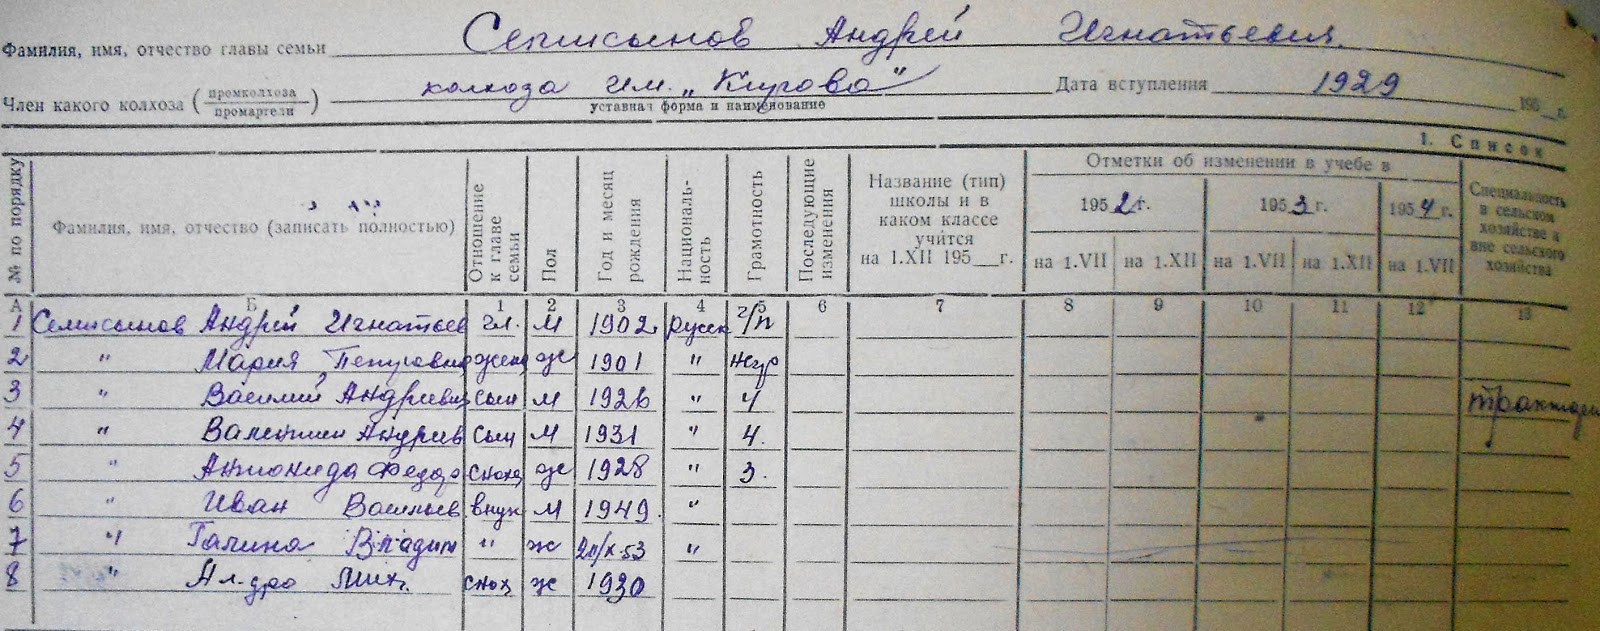 Фамилия, имя, отчество главы семьи Семисынов Андрей Игнатьевич.
Член какого колхоза (промколхоза промартели) колхоза им. „Кирова" Дата вступления 1929 195__г.
уставная форма и наименование
I. Список
№ по порядку
Фамилия, имя, отчество (записать полностью)
Отношение к главе семьи
Пол
Год и месяц рождения
Националь-
ность
Грамотность
Последующие изменения
Название (тип) школы и в каком классе учится на 1.XII 195__г.
Отметки об изменении в учебе в
1952г. 1953г. 1954г.
на 1.VII на 1.XII на 1.VII на 1.XII на 1.VII
Специальность в сельском хозяйстве и вне сельского хозяйства
А Б 1 2 3 4 5 6 7 8 9 10 11 12 13
1 Семисынов Андрей Игнатьев гл. м 1902 русск г/п
2 " Мария Петровна жена ж 1901 "
3 " Василий Андриевич сын м 1926 " 4
4 " Валентин Андрив сын м 1931 " 4.
5 " Антонида Федор сноха ж 1928 " 3.
6 " Иван Васильев внук м 1949 "
7 " Галина Владим " ж "
8 " Ал-дра Мих. снох ж 1930